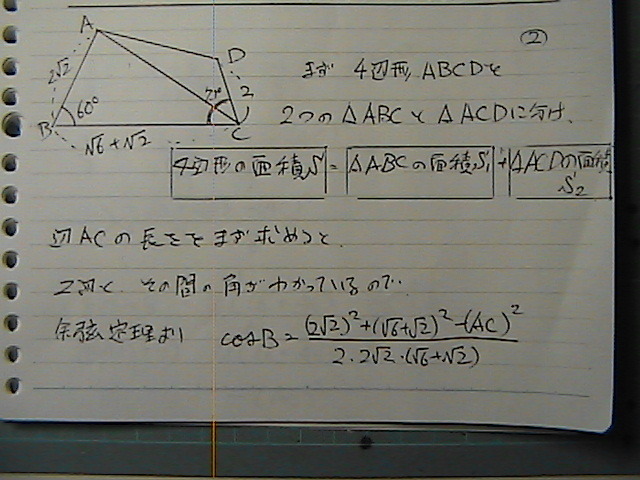 ②
A
D
2√2
75°
2
60°
B
C
√6+√2
まず 4辺形ABCDを
2つの△ABCと△ACDに分け、
4辺形の面積S = △ABCの面積S₁ + △ACDの面積S₂
辺ACの長さをまず求めると、
2辺と、その間の角がわかっているので、
余弦定理より cosB = (2√2)²+(√6+√2)²-(AC)² / 2・2√2・(√6+√2)